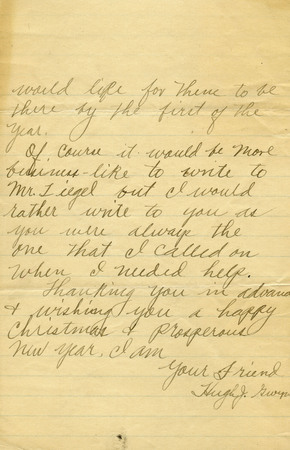 would like for them to be
there by the first of the
year.
Of course it would be more
business-like to write to
Mr. Siegel but I would
rather write to you as
you were always the
one that I called on
when I needed help.
Thanking you in advance
& wishing you a happy
Christmas & Prosperous
New Year, I am
Your Friend
Hugh J.